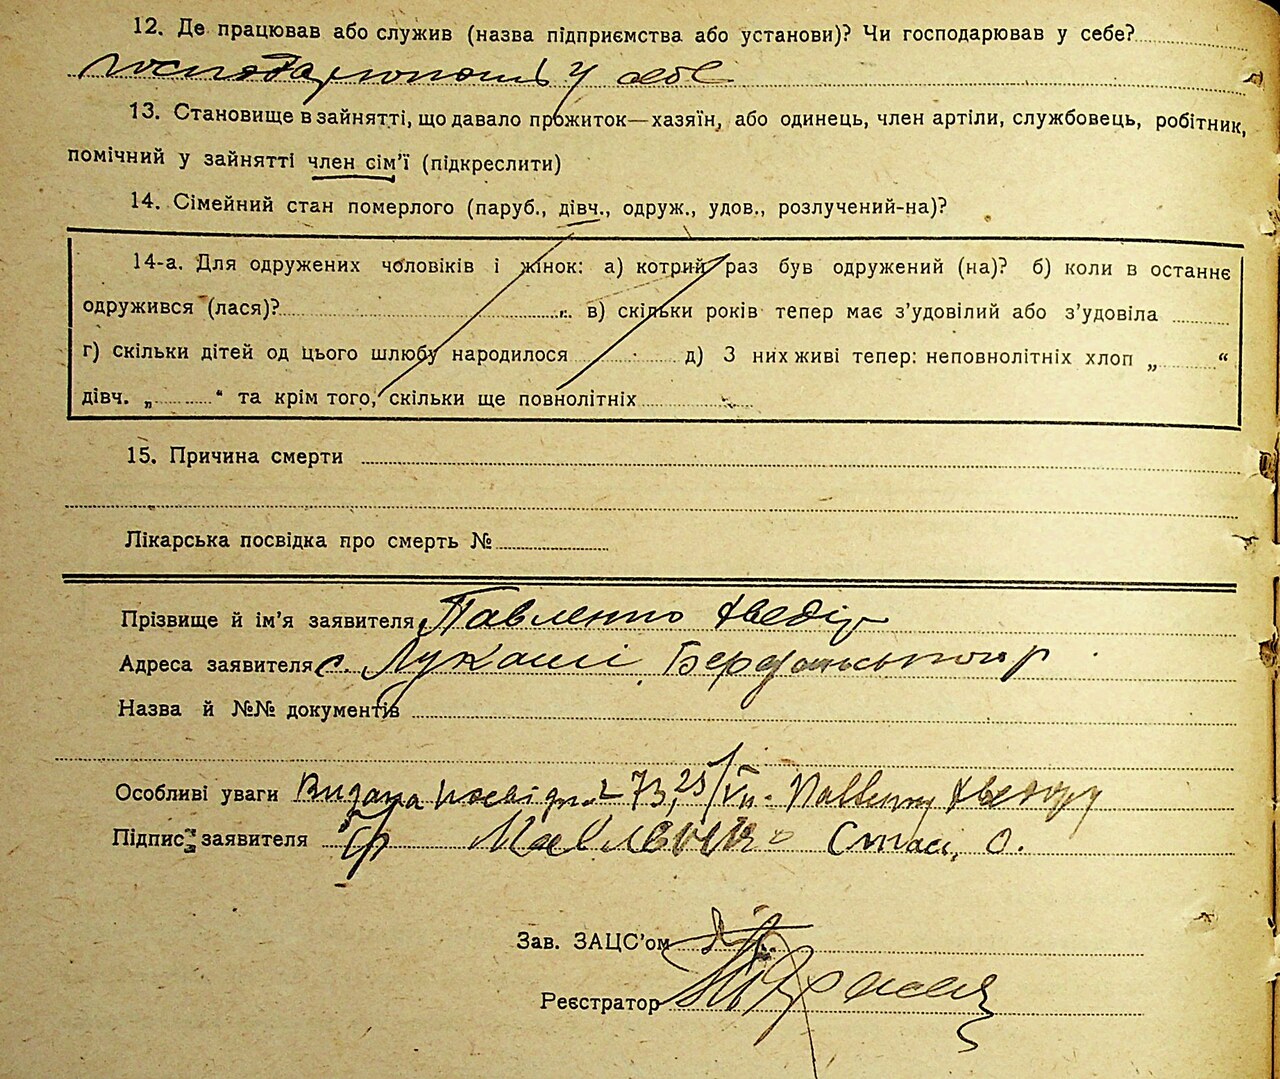 12. Де працював або служив (назва підприємства або установи)? Чи господарював у себе?
у себе
13. Становище в зайнятті, що давало прожиток—хазяїн, або одинець, член артіли, службовець, робітник,
помічний у зайнятті член сім'ї (підкреслити)
14. Сімейний стан померлого (паруб., дівч., одруж., удов., розлучений-на)?
14-а. Для одружених чоловіків і жінок: а) котрий раз був одружений (на)? б) коли в останнє
одружився (лася)? г. в) скільки років тепер має з'удовілий або з'удовіла
г) скільки дітей од цього шлюбу народилося д) З них живі тепер: неповнолітніх хлоп „ “
дівч. „ “ та крім того, скільки ще повнолітніх
15. Причина смерти
Лікарська посвідка про смерть №
Прізвище й ім'я заявителя Павленко Хведір
Адреса заявителя с. Лукаші, Бердянського р
Назва й №№ документів
Особливі уваги Видана посвідка 273, 25/VII
Підпис заявителя
Зав. ЗАЦС'ом
Реєстратор